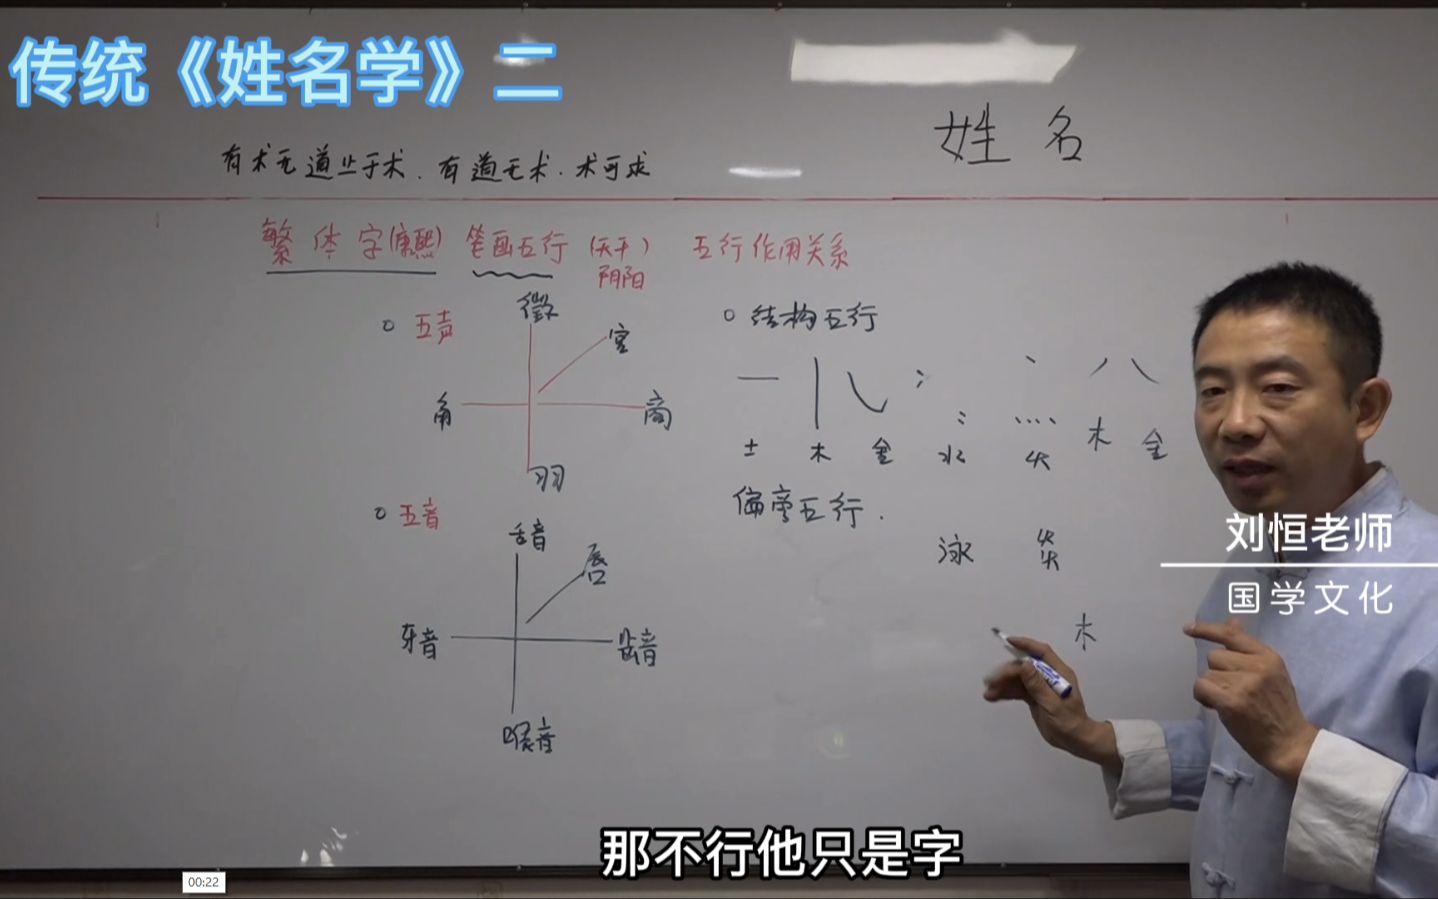 传统《姓名学》二
姓 名
有术无道止于术.有道无术.术可求
繁体字(康熙) 笔画五行(天干) 五行作用关系
阴阳
○五声
徵
宫
角
商
羽
○五音
舌音
唇
牙音
齿音
喉音
○结构五行
土 木 金 水 火 木 金
偏旁五行.
泳 炎
木
刘恒老师
国学文化
那不行他只是字
00:22